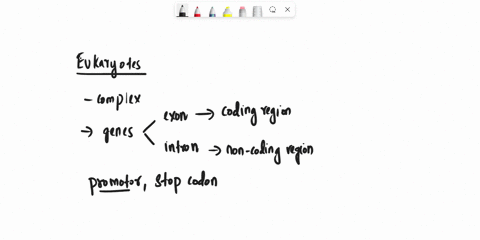 Eukaryotes
- complex
→ genes < exon → coding region
intron → non-coding region
promotor, stop codon